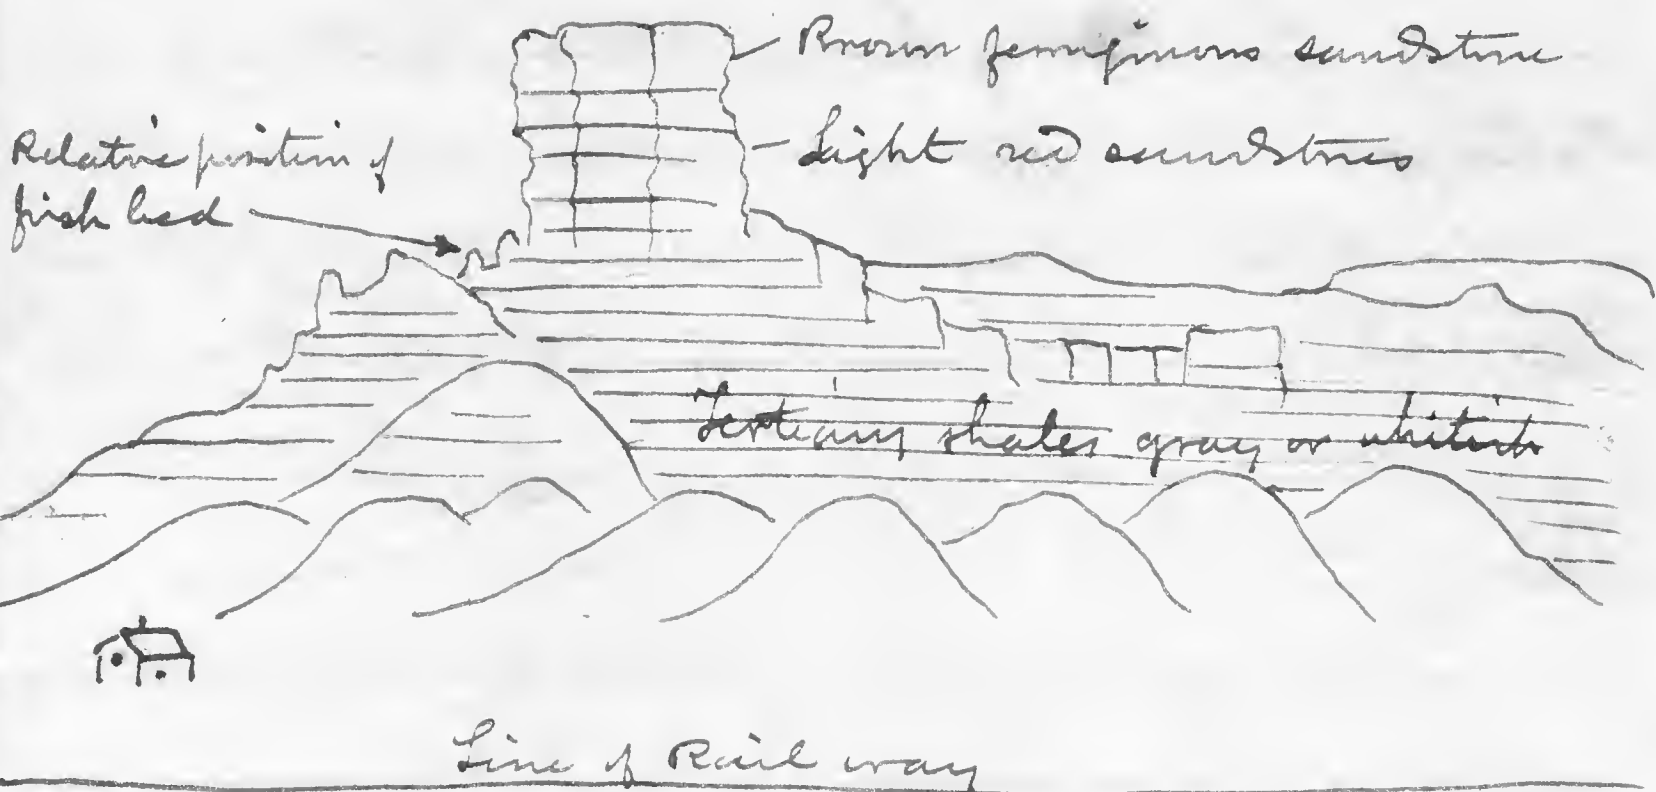 Brown ferruginous sandstone
Light red sandstones
Relative position of
fish bed
Tertiary shales gray or whitish
Line of Railway